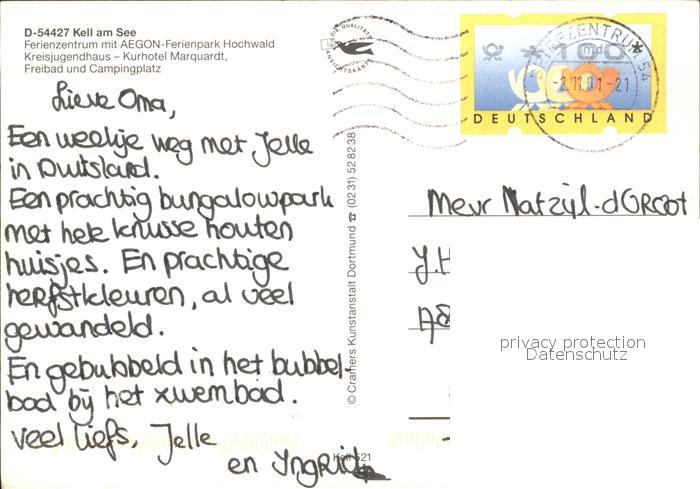 D-54427 Kell am See
Ferienzentrum mit AEGON-Ferienpark Hochwald
Kreisjugendhaus – Kurhotel Marquardt,
Freibad und Campingplatz
Lieve Oma,
Een weekje weg met Jelle
in Duitsland.
Een prachtig bungalowpark
met hele knusse houten
huisjes. En prachtige
herfstkleuren, al veel
gewandeld.
En gebubbeld in het bubbel-
bad bij het zwembad.
Veel liefs, Jelle
en Ingrid
© Cramers Kunstanstalt Dortmund ☎ (0231) 528238
DIE QUALITÄTS
ANSICHTSKARTE
*100
md
DEUTSCHLAND
BRIEFZENTRUM 54
-2.11.01-21
Mevr Natzijl-dGroot
J.H
A8
privacy protection
Datenschutz
Kell 521